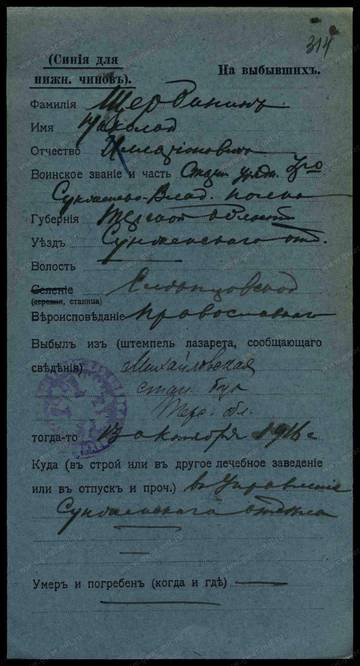 314
(Синія для
нижн. чиновъ).
На выбывшихъ.
Фамилія Щербининъ
Имя Николай
Отчество
Воинское званіе и часть Старш. уряд. 3го
Сунженско-Влад. полка
Губернія Терской области
Уѣздъ Сунженскаго отд.
Волость
Селеніе Слѣпцовской
(деревня, станица)
Вѣроисповѣданіе Православнаго
Выбылъ изъ (штемпель лазарета, сообщающаго
свѣдѣнія) Михайловская
стан.
Терс. бл.
тогда-то 13 октября 1916 г
Куда (въ строй или въ другое лечебное заведеніе
или въ отпускъ и проч.) въ Управленіе
Сунженскаго отдѣла
Умеръ и погребенъ (когда и гдѣ)